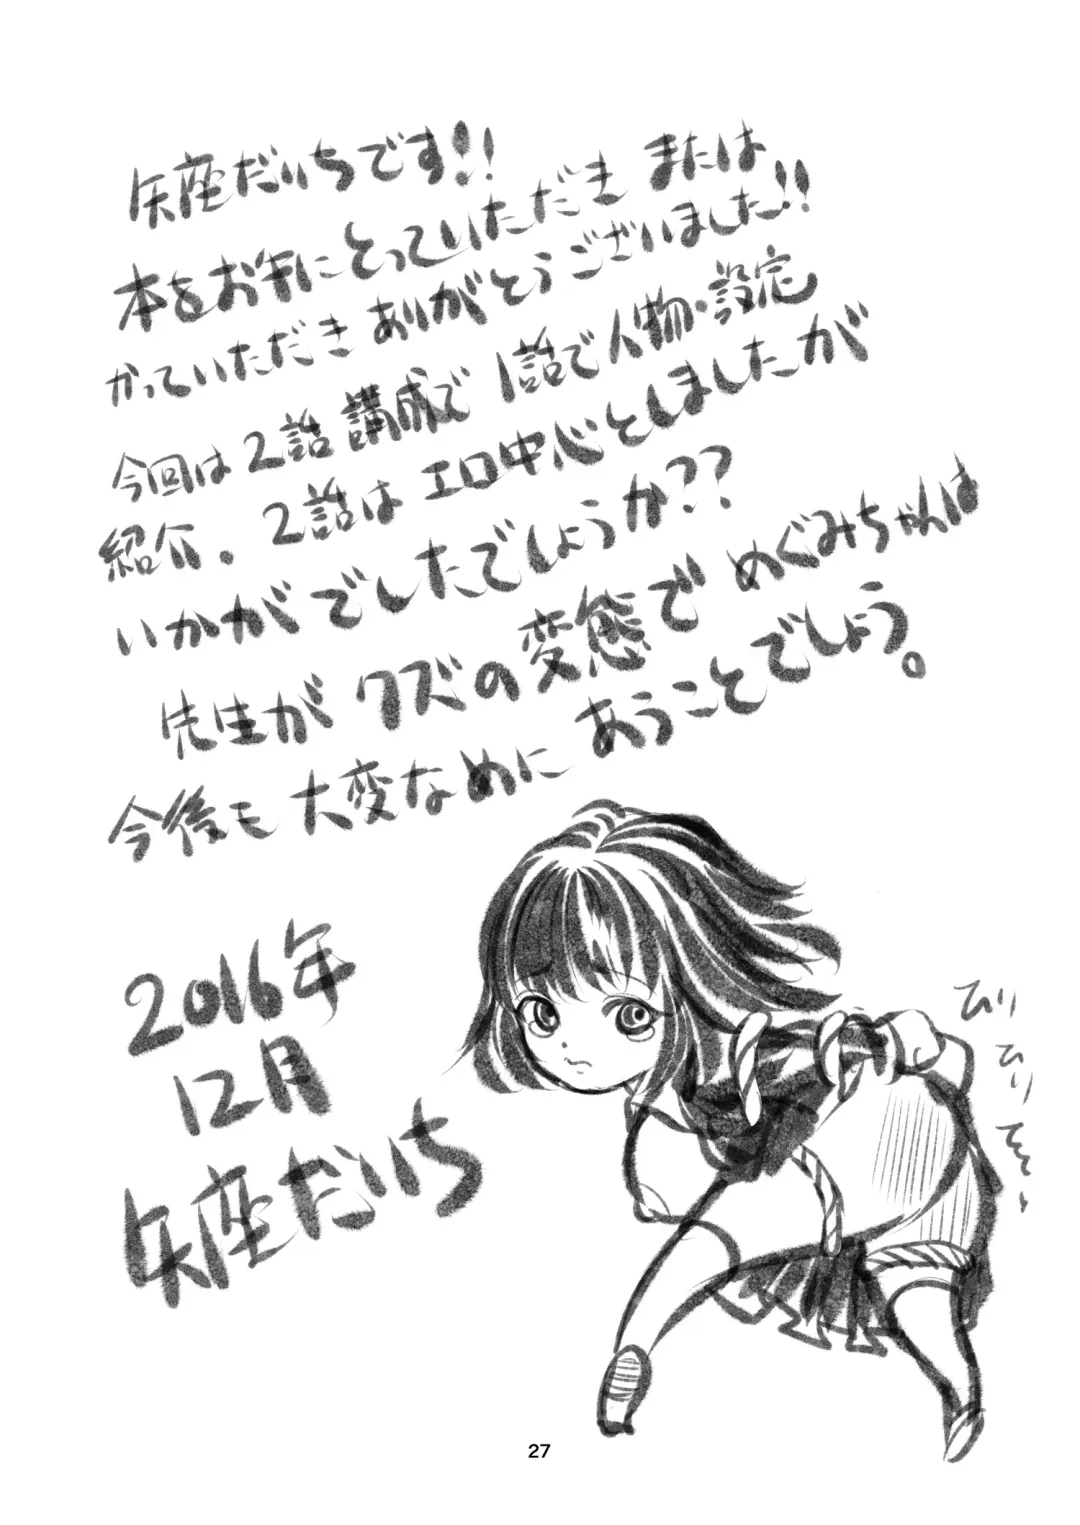 矢座だいちです!!
本をお手にとっていただき または
かっていただき ありがとうございました!!
今回は2話講成で 1話で人物・設定
紹介。2話は エロ中心としましたが
いかがでしたでしょうか??
先生が クズの変態で めぐみちゃんは
今後も 大変なめに あうことでしょう。
2016年
12月
矢座だいち
27